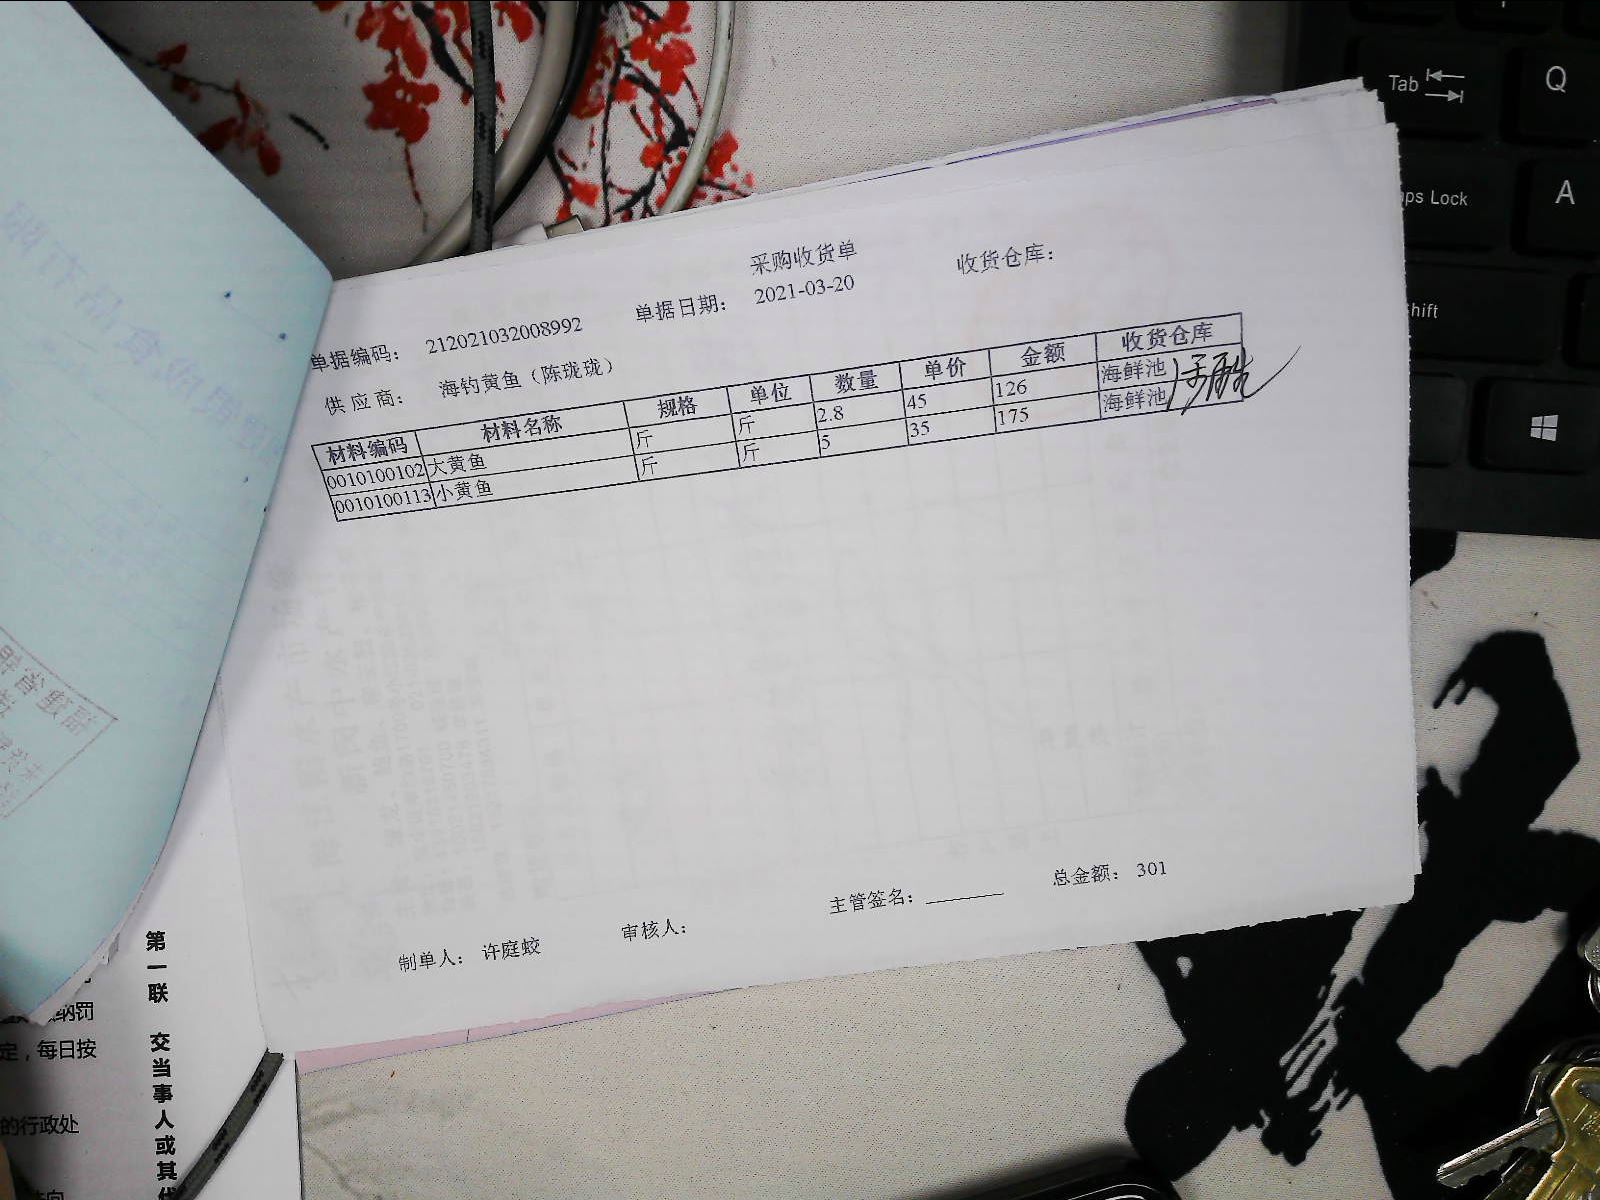 采购收货单
单据编码： 212021032008992 单据日期： 2021-03-20 收货仓库：
供应商： 海钓黄鱼（陈珑珑）
材料编码 材料名称 规格 单位 数量 单价 金额 收货仓库
0010100102 大黄鱼 斤 斤 2.8 45 126 海鲜池
0010100113 小黄鱼 斤 斤 5 35 175 海鲜池
制单人： 许庭蛟 审核人： 主管签名： 总金额： 301
第一联 交当事人或其代
纳罚
定，每日按
的行政处
Tab
Q
Lock
A